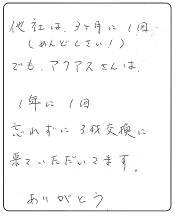 他社は、3ヶ月に1回
(めんどくさい!)
でも、アクアスさんは、
1年に1回
忘れずに3枚交換に
来ていただいてます。
ありがとう